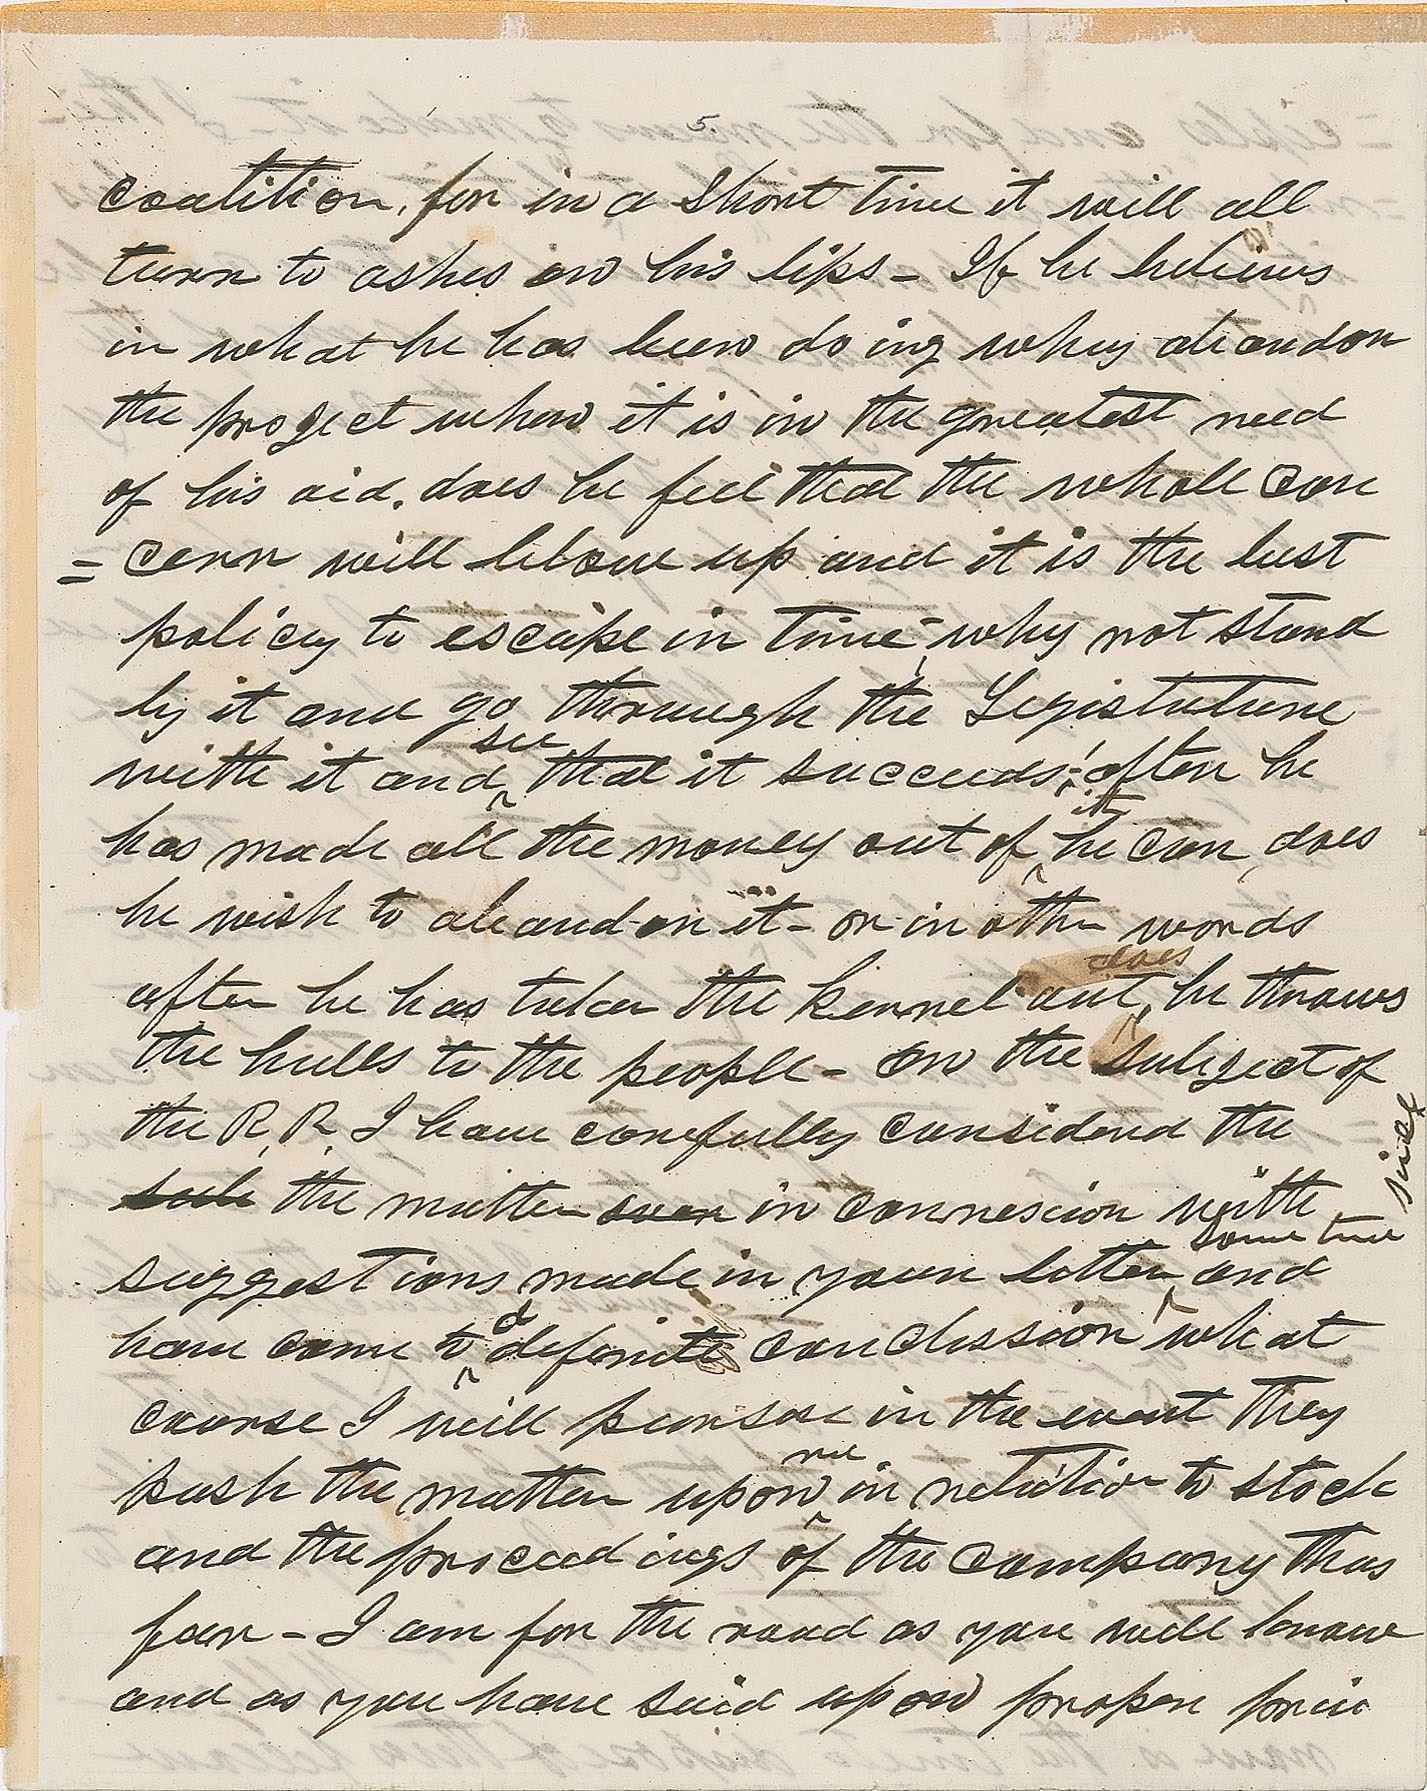 5.
coalition, for in a short time it will all
turn to ashes on his lips - If he believes
in what he has been doing why abandon
the project when it is in the greatest need
of his aid. does he feel that the whole con
= cern will blow up and it is the best
policy to escape in time - why not stand
by it and go through the Legislature
with it and see that it succeeds; after he
has made all the money out of it he can, does
he wish to abandon it - or in other words
after he has taken the kernel out, does he throws
the hulls to the people - on the subject of
the R. R. I have carefully considered the
sub the matter over in connexion with
suggestions made in your letter some time since and
have come to a definite conclission what
course I will persose in the event they
push the matter upon me in relation to stock
and the proceedings of the company thus
far - I am for the road as you well know
and as you have said upon proper prin